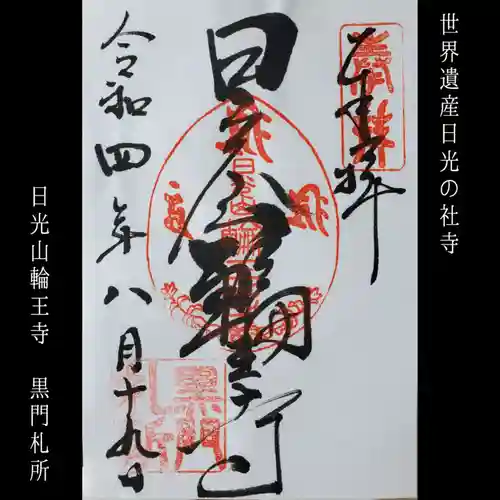 世界遺産日光の社寺
奉拝
日光山輪王寺
令和四年八月十九日
日光山輪王寺 黒門札所
黒門